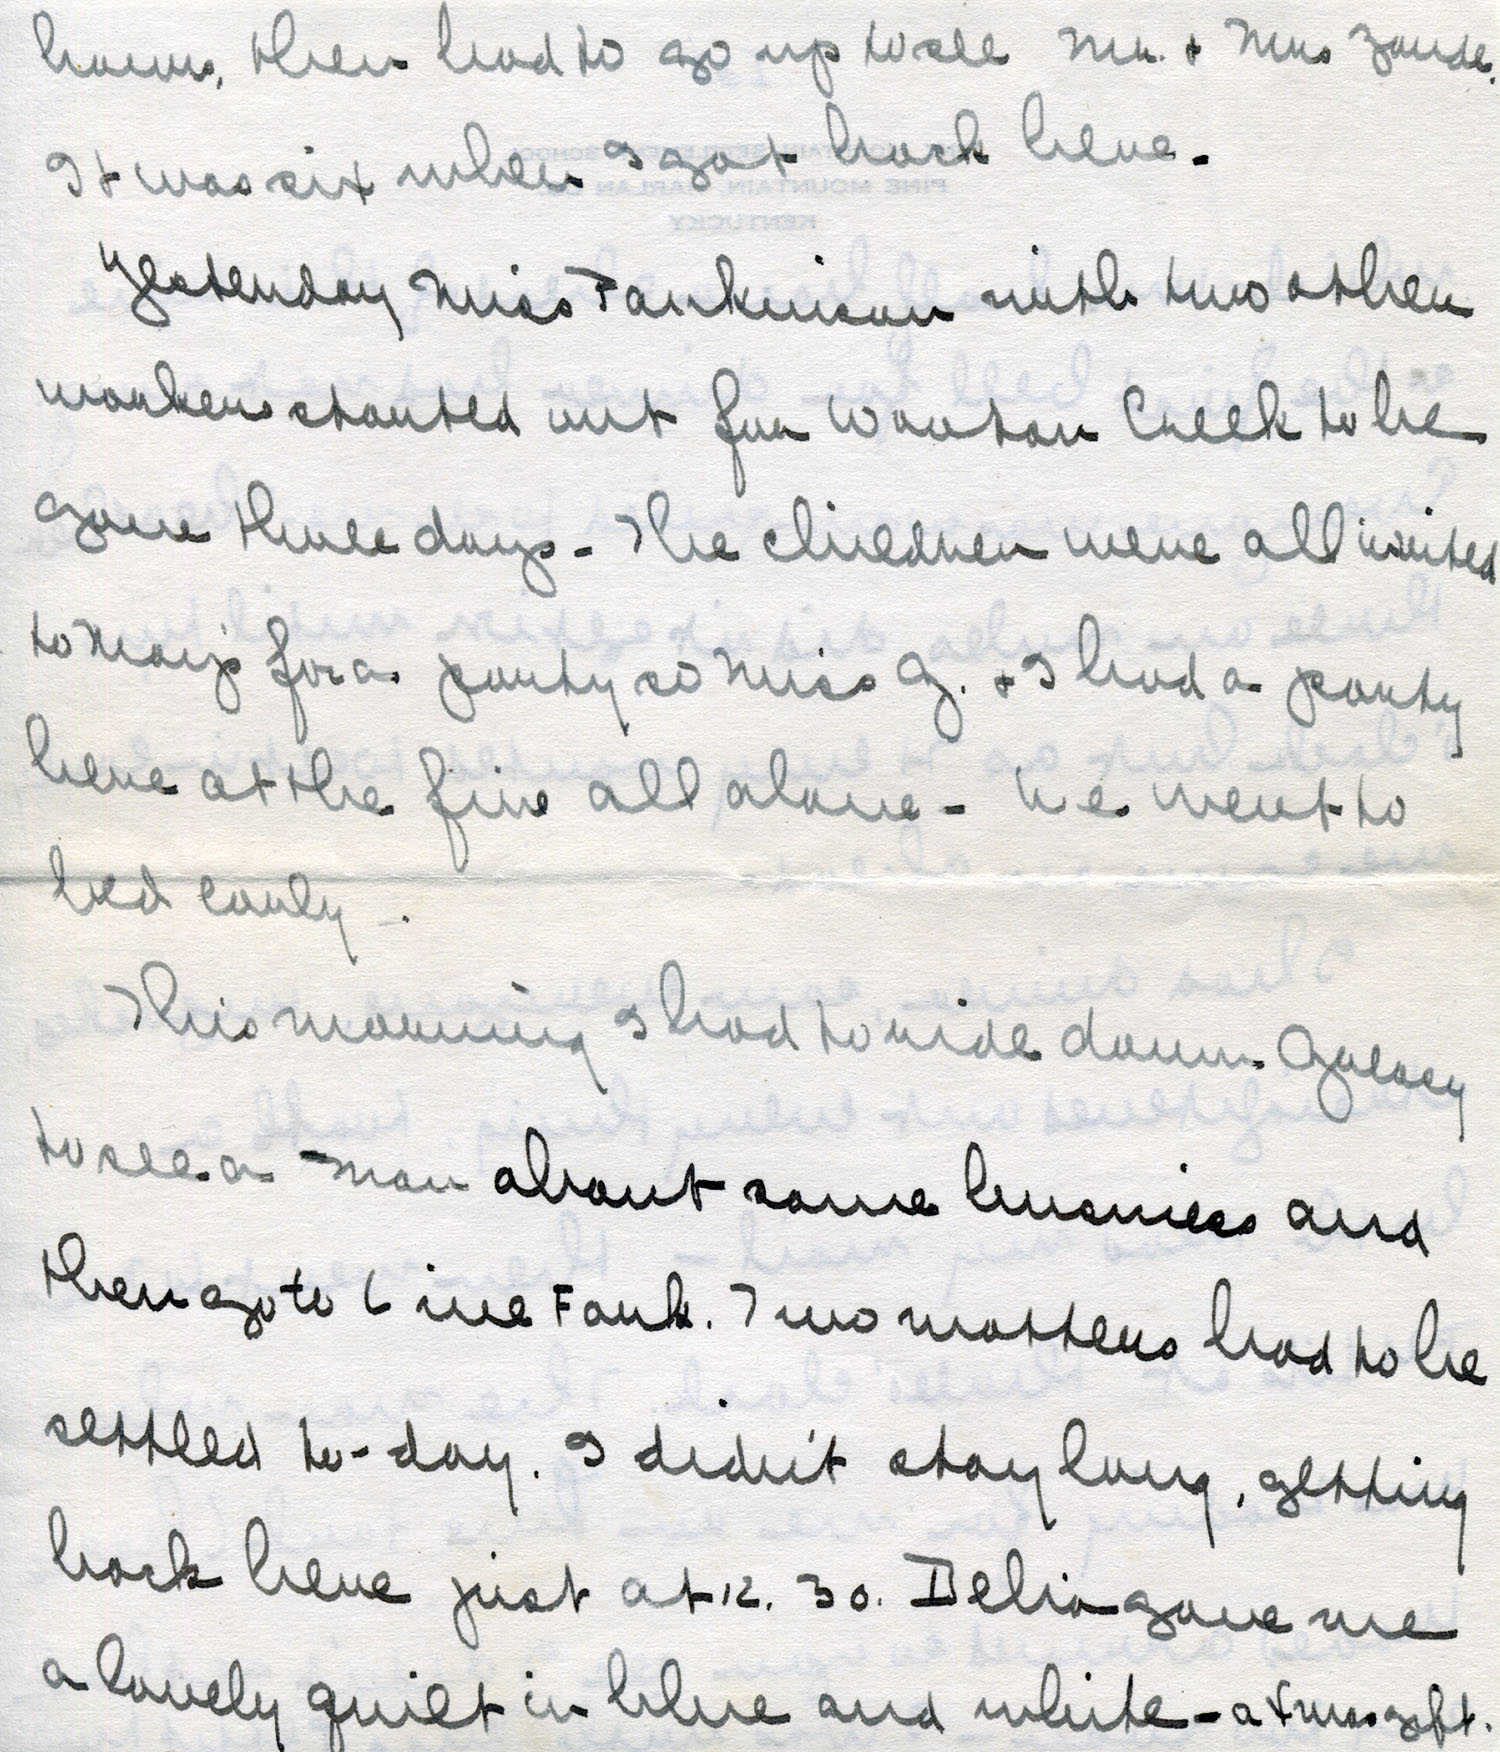 hour, then had to go up to see Mr. & Mrs Zande.
It was six when I got back here.
Yesterday Miss Parkinson with two other
workers started out for Wooton Creek to be
gone three days - The children were all invited
to Mary's for a party so Miss G. & I had a party
here at the fire all alone - We went to
bed early -.
This morning I had to ride down Greasy
to see a man about some business and
then go to Line Fork. Two matters had to be
settled to-day. I didn't stay long, getting
back here just at 12.30. Delia gave me
a lovely quilt in blue and white - a Xmas gft.